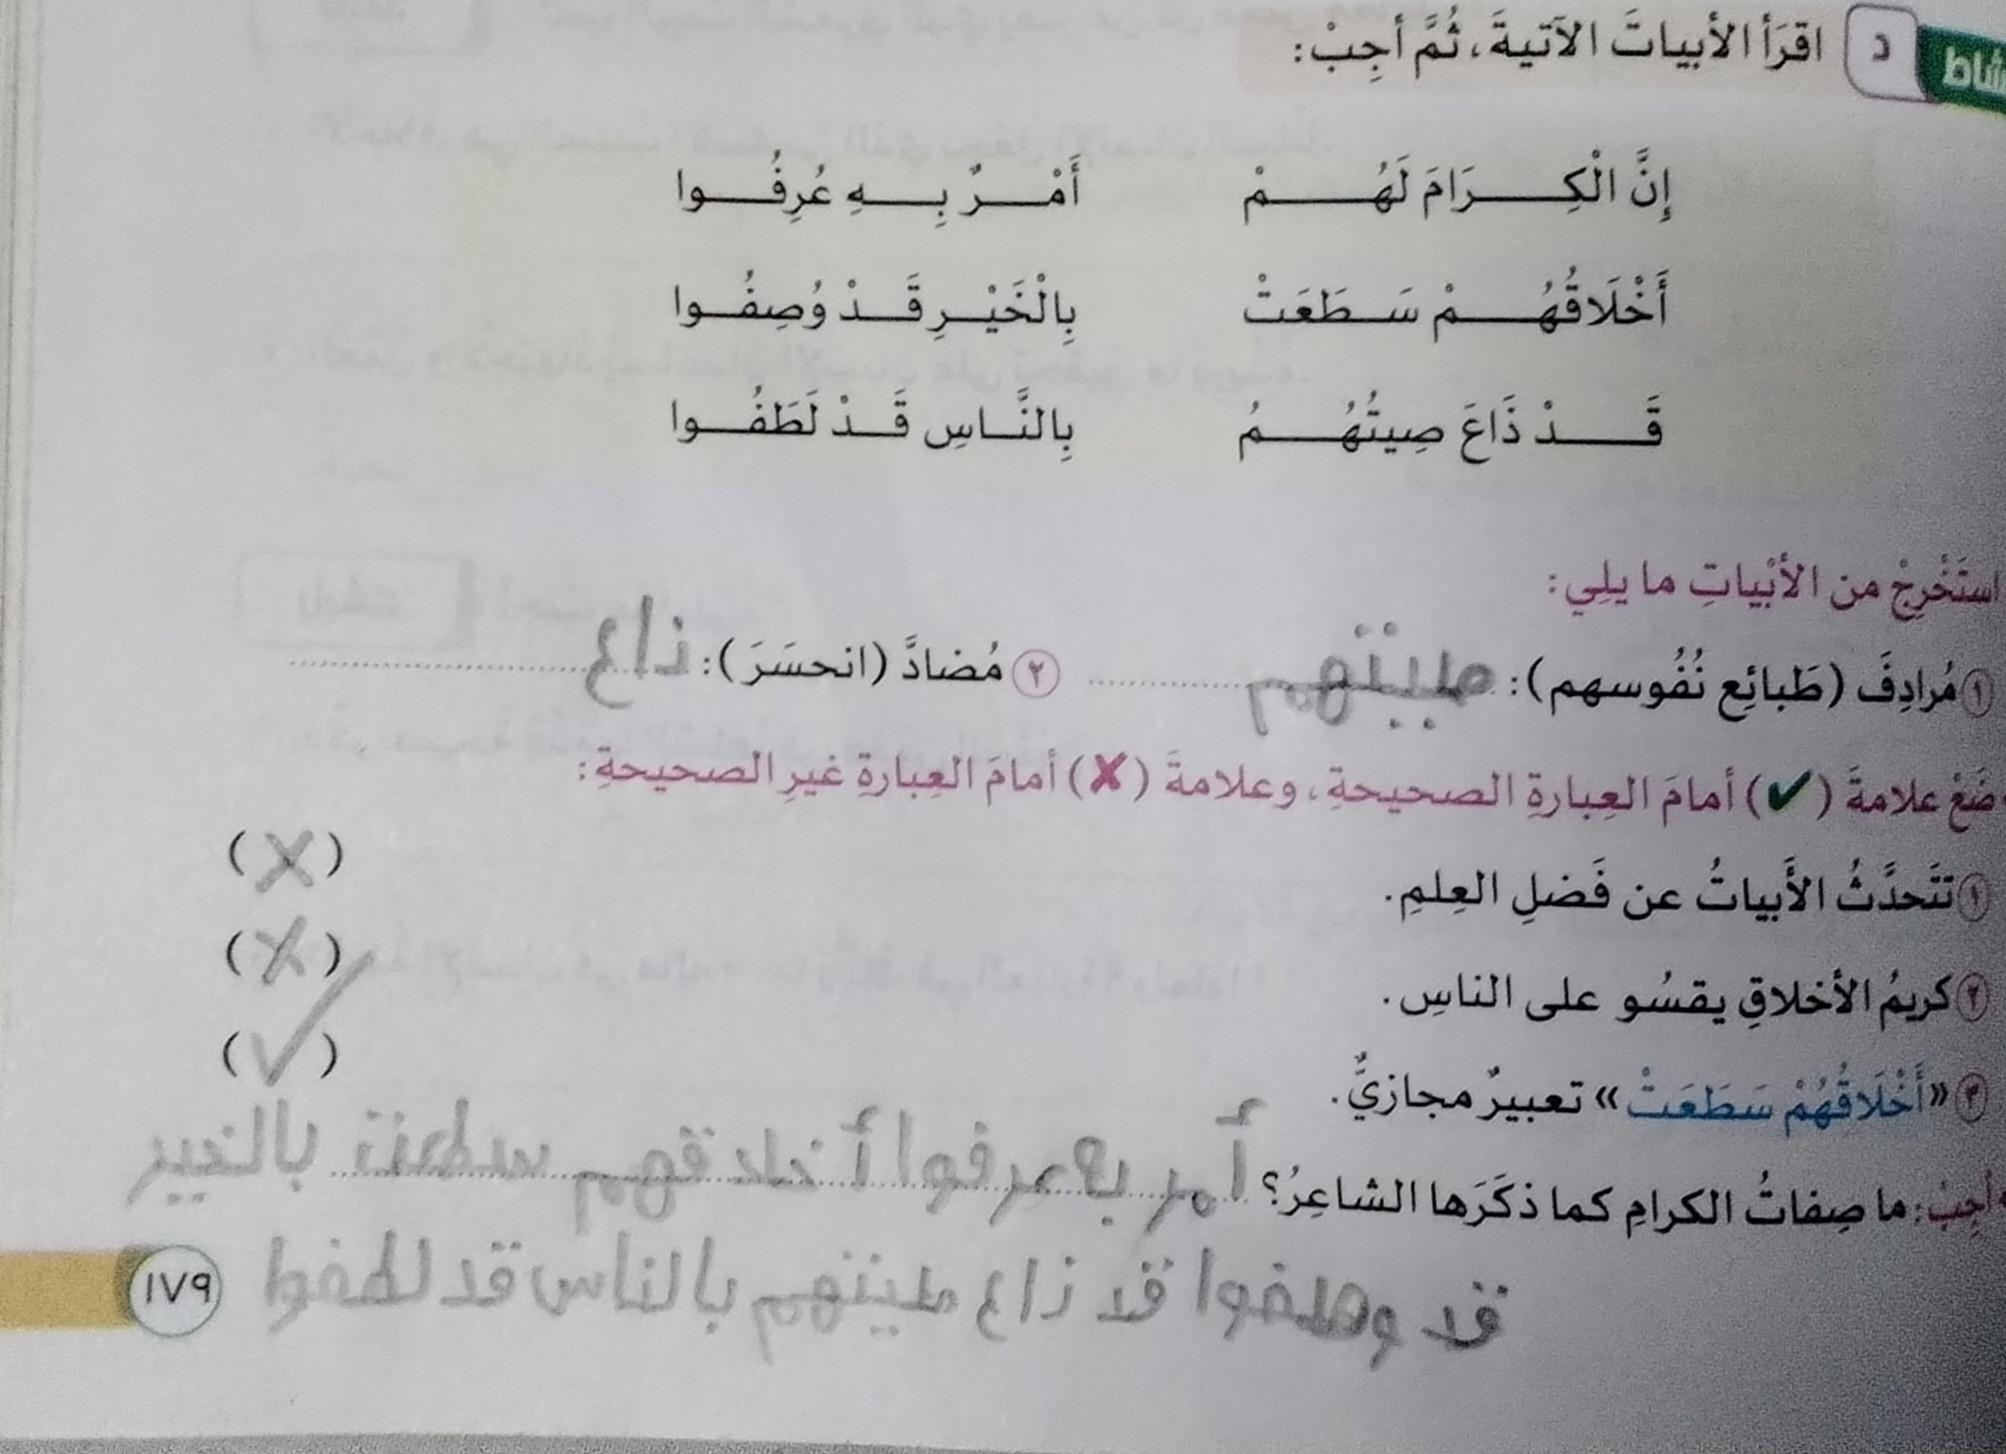 نشاط د اقرَأ الأبياتَ الآتيةَ، ثُمَّ أجِبْ:
إِنَّ الْكِـــرَامَ لَهُـــمْ أَمْـــرٌ بِـــهِ عُرِفُـــوا
أَخْلَاقُهُـــمْ سَـطَعَتْ بِالْخَيْـرِ قَـــدْ وُصِفُـــوا
قَـــدْ ذَاعَ صِيتُهُـــمُ بِالنَّـاسِ قَـــدْ لَطَفُـــوا
استَخْرِجْ من الأَبْياتِ ما يلِي:
١ مُرادِفَ (طَبائِع نُفُوسهم): صيتهم ٢ مُضادَّ (انحسَرَ): ذاع
ضَعْ علامةَ (✔) أمامَ العِبارةِ الصحيحةِ، وعلامةَ (✘) أمامَ العِبارةِ غيرِ الصحيحةِ:
١ تتَحدَّثُ الأَبياتُ عن فَضلِ العِلمِ. (X)
٢ كريمُ الأخلاقِ يقسُو على الناسِ. (X)
٣ «أَخْلَاقُهُمْ سَطَعَتْ» تعبيرٌ مجازيٌّ. (✓)
أجِبْ: ما صِفاتُ الكرامِ كما ذكَرَها الشاعِرُ؟ أمر به عرفوا أخلاقهم سطعت بالخير
قد وصفوا قد ذاع صيتهم بالناس قد لطفوا
١٧٩